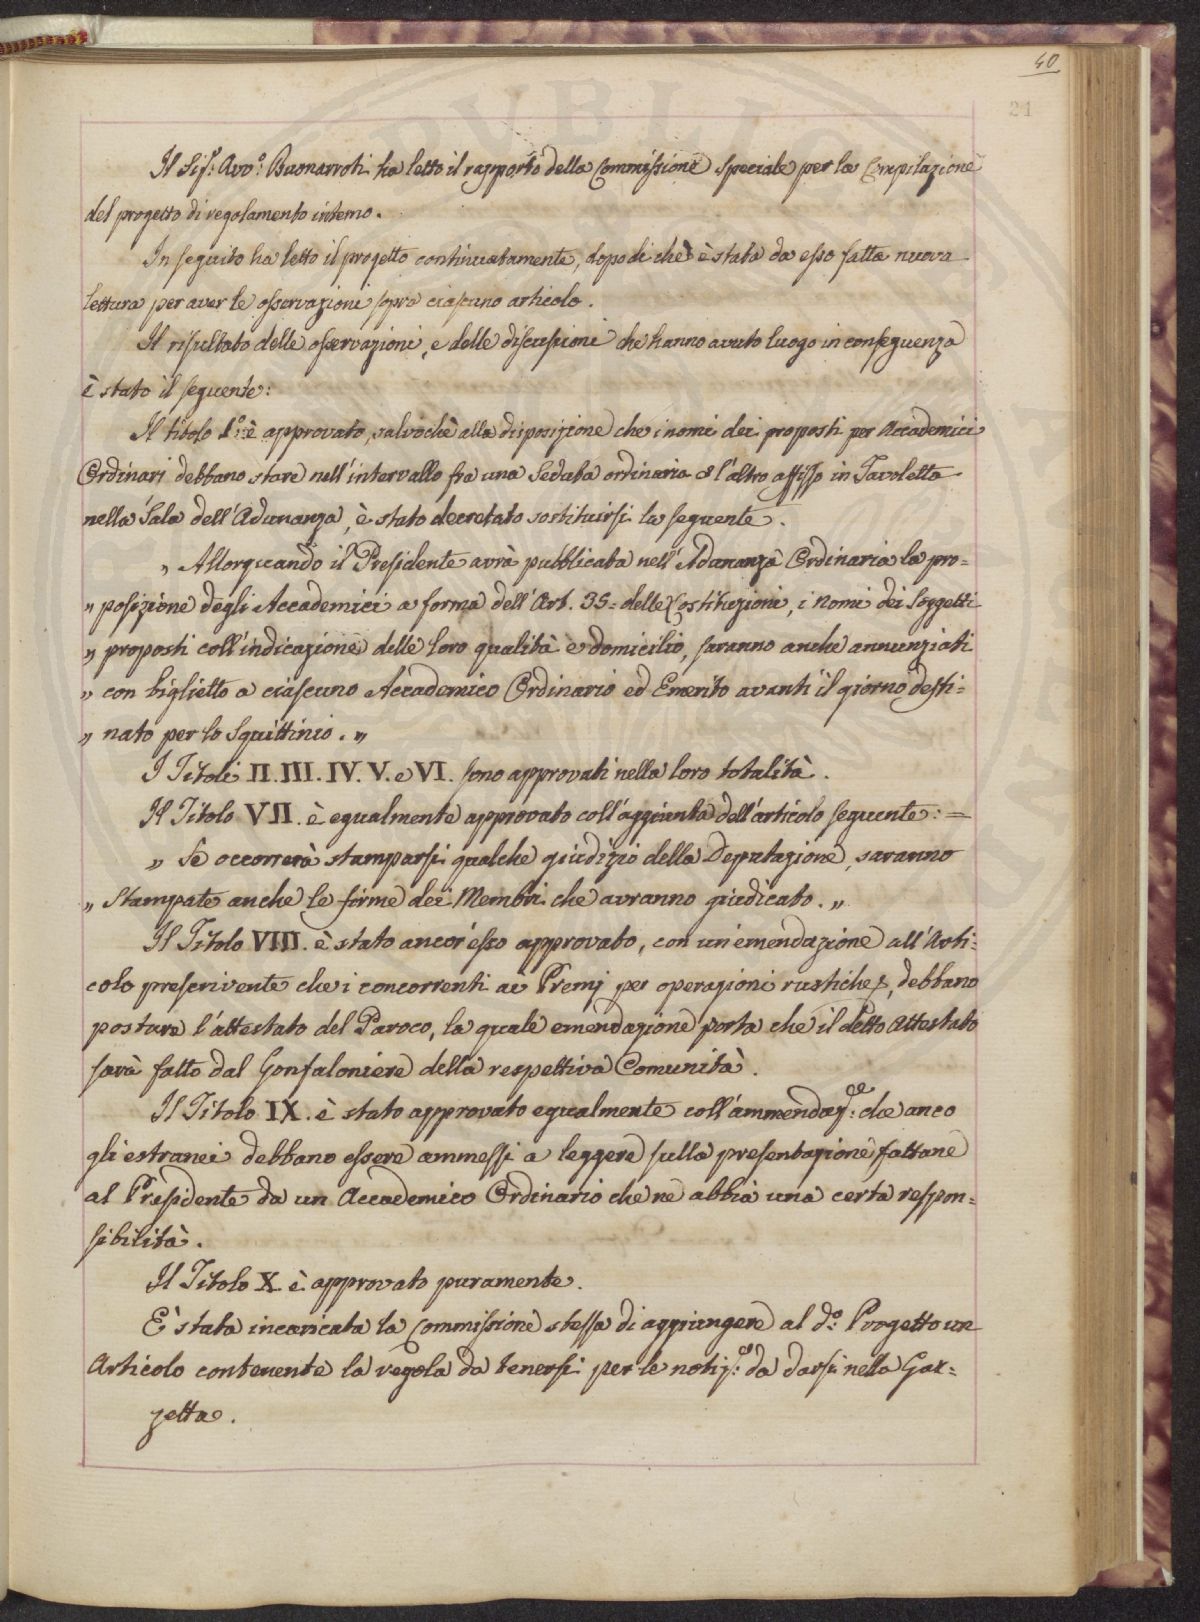 40
21
Il Sig.r Avv.o Buonarroti ha letto il rapporto della Commissione speciale per la Compilazione
del progetto di regolamento interno.
In seguito ha letto il progetto continuatamente, dopodichè è stata da esso fatta nuova
lettura per aver le osservazioni sopra ciascuno articolo.
Il risultato delle osservazioni, e delle discussioni che hanno avuto luogo in conseguenza
è stato il seguente:
Il titolo 1.o è approvato, salvochè alla disposizione che i nomi dei proposti per Accademici
Ordinari debbano stare nell'intervallo fra una Seduta ordinaria e l'altra affissi in Tavoletta
nella Sala dell'Adunanza, è stato decretato sostituirsi la seguente.
„ Allorquando il Presidente avrà pubblicata nell'Adunanza Ordinaria la pro=
„ posizione degli Accademici a forma dell'Art. 35= delle Costituzioni, i Nomi dei Soggetti
„ proposti coll'indicazione delle loro qualità e domicilio, saranno anche annunziati
„ con biglietto a ciascuno Accademico Ordinario ed Emerito avanti il giorno desti=
„ nato per lo Squittinio. „
I Titoli II. III. IV. V. e VI. sono approvati nella loro totalità.
Il Titolo VII. è egualmente approvato coll'aggiunta dell'articolo seguente: =
„ Se occorrerà stamparsi qualche giudizio della Deputazione, saranno
„ Stampate anche le firme dei Membri che avranno giudicato. „
Il Titolo VIII. è stato ancor'esso approvato, con un'emendazione all'Arti=
colo prescrivente che i concorrenti ai Premj per operazioni rustiche, debbano
portare l'attestato del Paroco, la quale emendazione porta che il detto Attestato
sarà fatto dal Gonfaloniere della respettiva Comunità.
Il Titolo IX. è stato approvato egualmente coll'ammendaz.ne: che anco
gli estranei debbano essere ammessi a leggere sulla presentazione fattane
al Presidente da un Accademico Ordinario che ne abbia una certa respon=
sibilità.
Il Titolo X. è approvato puramente.
È stata incaricata la Commissione stessa di aggiungere al d.o: Progetto un
Articolo contenente la regola da tenersi per le notiz.e: da darsi nella Gaz=
zetta.